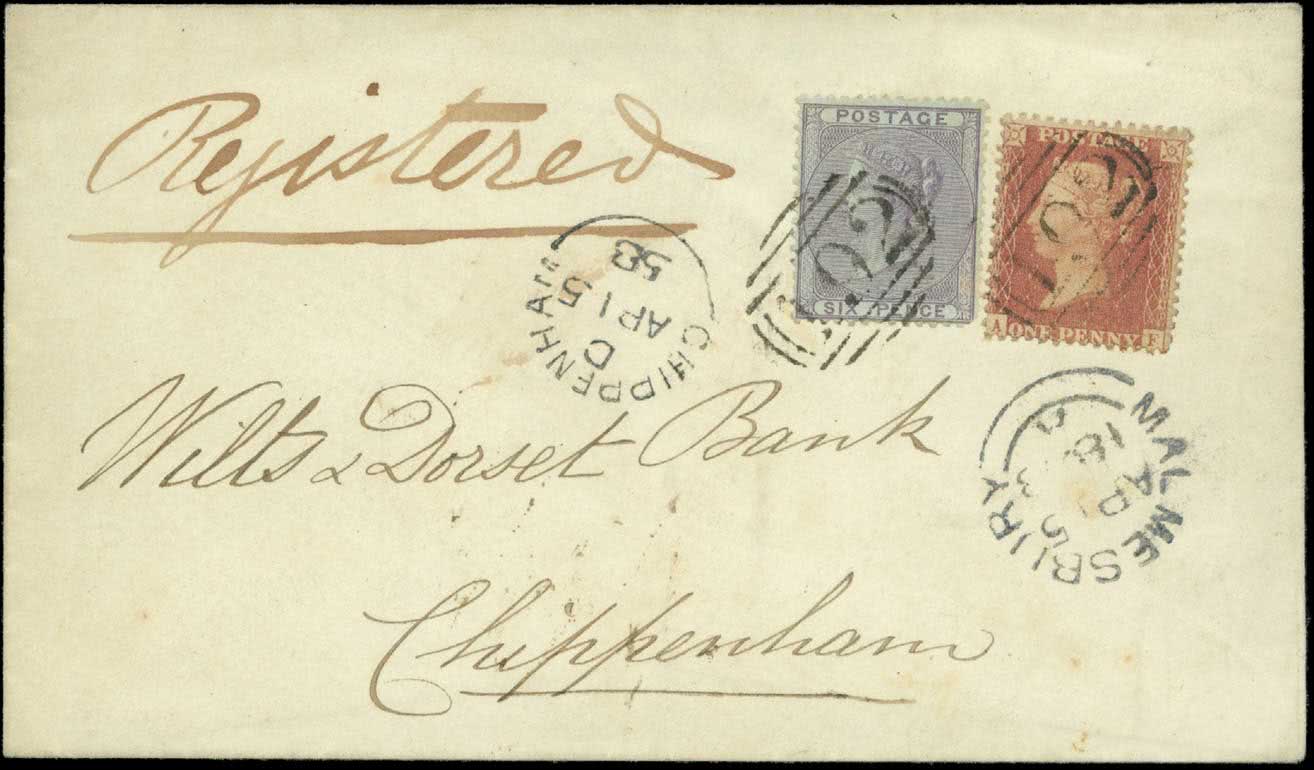 Registered
POSTAGE
SIX PENCE
POSTAGE
A ONE PENNY
CHIPPENHAM
D
AP 15
58
MALMESBURY
AP
Wilts & Dorset Bank
Chippenham